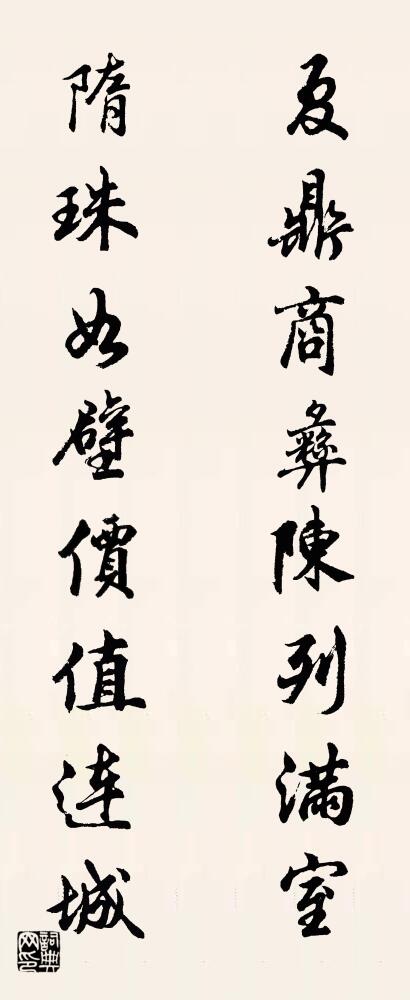 夏鼎商彝陳列滿室
隋珠如璧價值連城
詞典网印